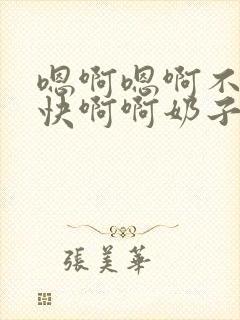 嗯啊嗯啊不
快啊啊奶子
張美華